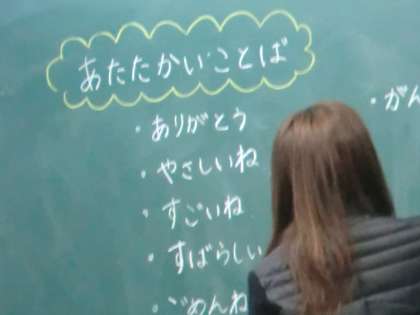 あたたかいことば
・ありがとう
・やさしいね
・すごいね
・すばらしい
・ごめんね
・がん